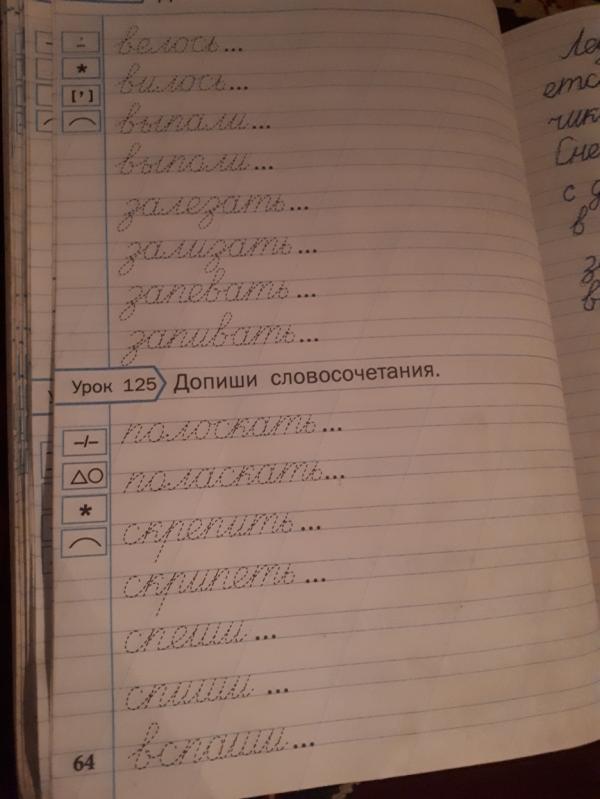 велось...
вилось...
[']
выпали...
выполи...
залезать...
зализать...
запевать...
запивать...
Урок 125 Допиши словосочетания.
полоскать...
поласкать...
скрепить...
скрипеть...
спеши...
спиши...
вспаши...
64
етс
чик
Сне
с
в